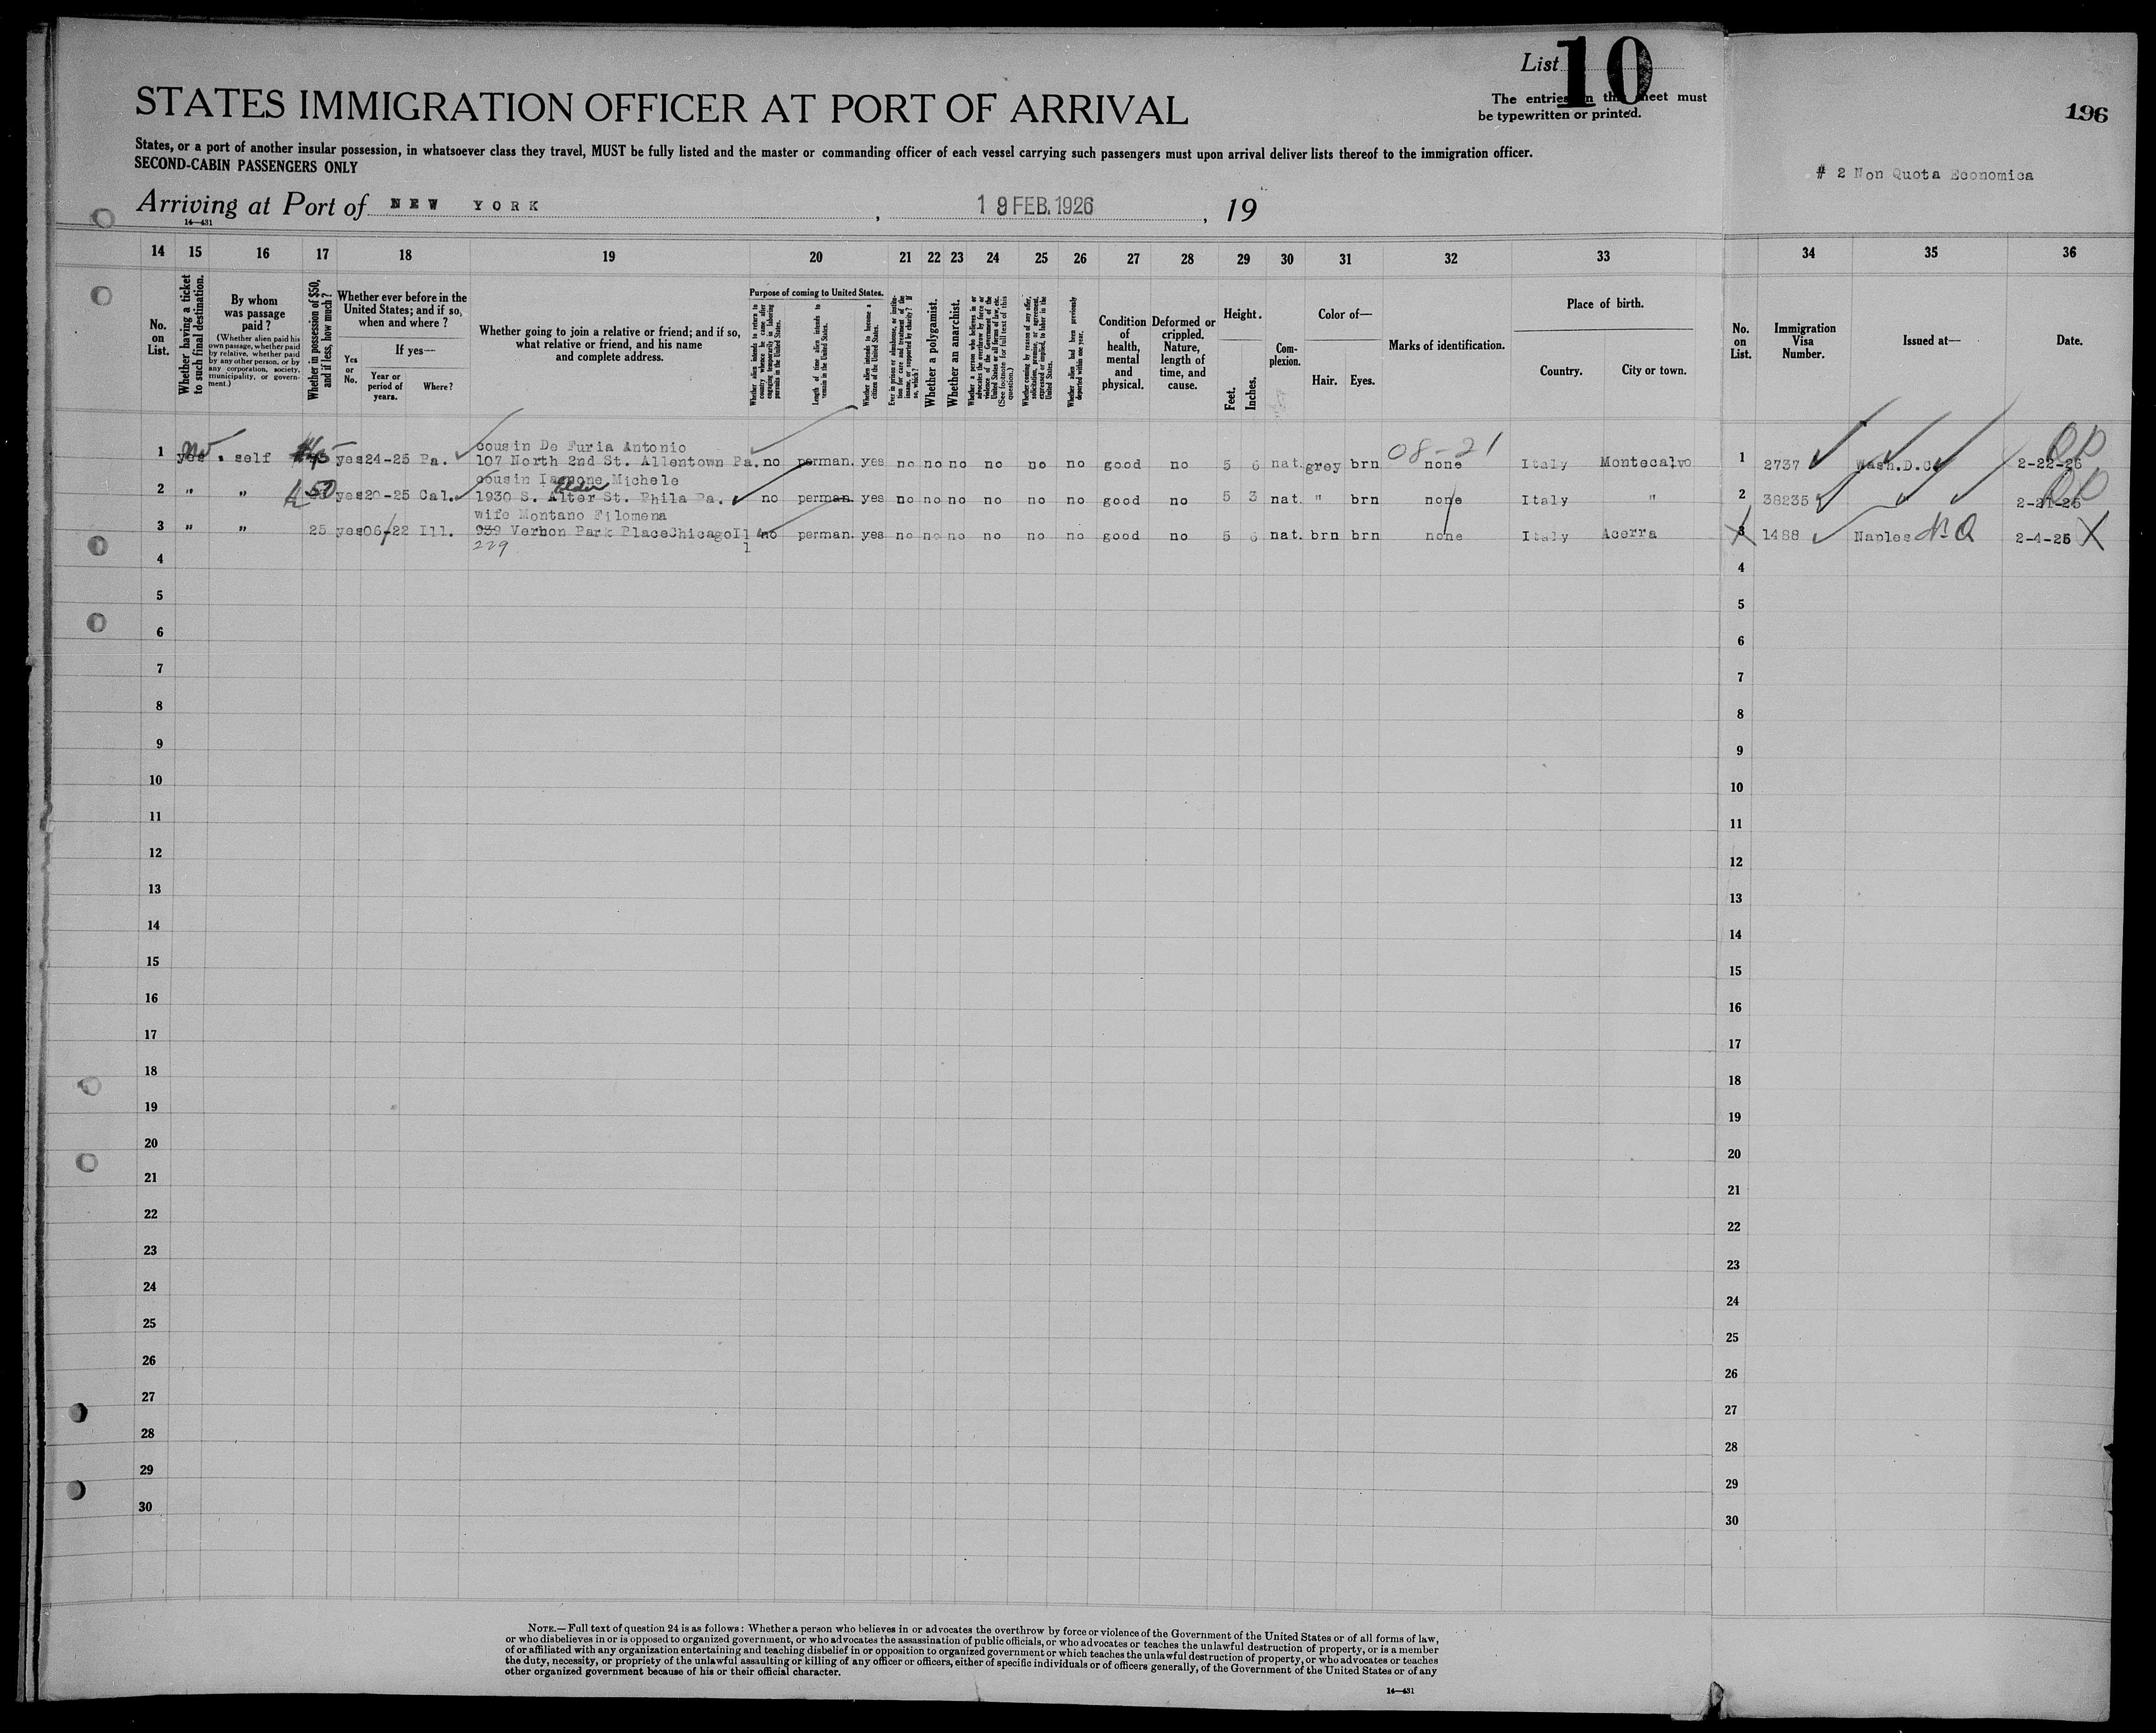 List 10
The entries on this sheet must
be typewritten or printed.
196
STATES IMMIGRATION OFFICER AT PORT OF ARRIVAL
States, or a port of another insular possession, in whatsoever class they travel, MUST be fully listed and the master or commanding officer of each vessel carrying such passengers must upon arrival deliver lists thereof to the immigration officer.
SECOND-CABIN PASSENGERS ONLY
# 2 Non Quota Economica
Arriving at Port of NEW YORK, 19 FEB. 1926, 19
14—431
14 15 16 17 18 19 20 21 22 23 24 25 26 27 28 29 30 31 32 33 34 35 36
No. on List.
Whether having a ticket to such final destination.
By whom was passage paid?
(Whether alien paid his own passage, whether paid by relative, whether paid by any other person, or by any corporation, society, municipality, or government.)
Whether in possession of $50, and if less, how much?
Whether ever before in the United States; and if so, when and where?
Yes or No.
If yes—
Year or period of years.
Where?
Whether going to join a relative or friend; and if so, what relative or friend, and his name and complete address.
Purpose of coming to United States.
Whether alien intends to return to country whence he came after engaging temporarily in laboring pursuits in the United States.
Length of time alien intends to remain in the United States.
Whether alien intends to become a citizen of the United States.
Ever in prison or almshouse, or institution for care and treatment of the insane, or supported by charity? If so, which?
Whether a polygamist.
Whether an anarchist.
Whether a person who believes in or advocates the overthrow by force or violence of the Government of the United States or all forms of law, etc. (See footnote for full text of this question.)
Whether coming by reason of any offer, solicitation, promise, or agreement, expressed or implied, to labor in the United States.
Whether alien had been previously deported within one year.
Condition of health, mental and physical.
Deformed or crippled. Nature, length of time, and cause.
Height.
Feet.
Inches.
Complexion.
Color of—
Hair.
Eyes.
Marks of identification.
Place of birth.
Country.
City or town.
No. on List.
Immigration Visa Number.
Issued at—
Date.
cousin De Furia Antonio 08-21
1 yes no self 45 yes 24-25 Pa. 107 North 2nd St. Allentown Pa. no perman. yes no no no no no no good no 5 6 nat. grey brn none Italy Montecalvo 1 2737 Wash.D.C. 2-22-26
cousin Iagnone Michele
2 " " 50 yes 20-25 Cal. 1930 S. Alter St. Phila Pa. no perman. yes no no no no no no good no 5 3 nat. " brn none Italy " 2 38235 "
wife Montano Filomena
3 " " 25 yes 06-22 Ill. 939 Vernon Park Place Chicago Ill no perman. yes no no no no no no good no 5 6 nat. brn brn none Italy Acerra 3 1488 Naples N Q 2-4-26 X
229
4 4
5 5
6 6
7 7
8 8
9 9
10 10
11 11
12 12
13 13
14 14
15 15
16 16
17 17
18 18
19 19
20 20
21 21
22 22
23 23
24 24
25 25
26 26
27 27
28 28
29 29
30 30
NOTE.—Full text of question 24 is as follows: Whether a person who believes in or advocates the overthrow by force or violence of the Government of the United States or of all forms of law,
or who disbelieves in or is opposed to organized government, or who advocates the assassination of public officials, or who advocates or teaches the unlawful destruction of property, or is a member
of or affiliated with any organization entertaining and teaching disbelief in or opposition to organized government or which teaches the unlawful destruction of property, or who advocates or teaches
the duty, necessity, or propriety of the unlawful assaulting or killing of any officer or officers, either of specific individuals or of officers generally, of the Government of the United States or of any
other organized government because of his or their official character.
14—431